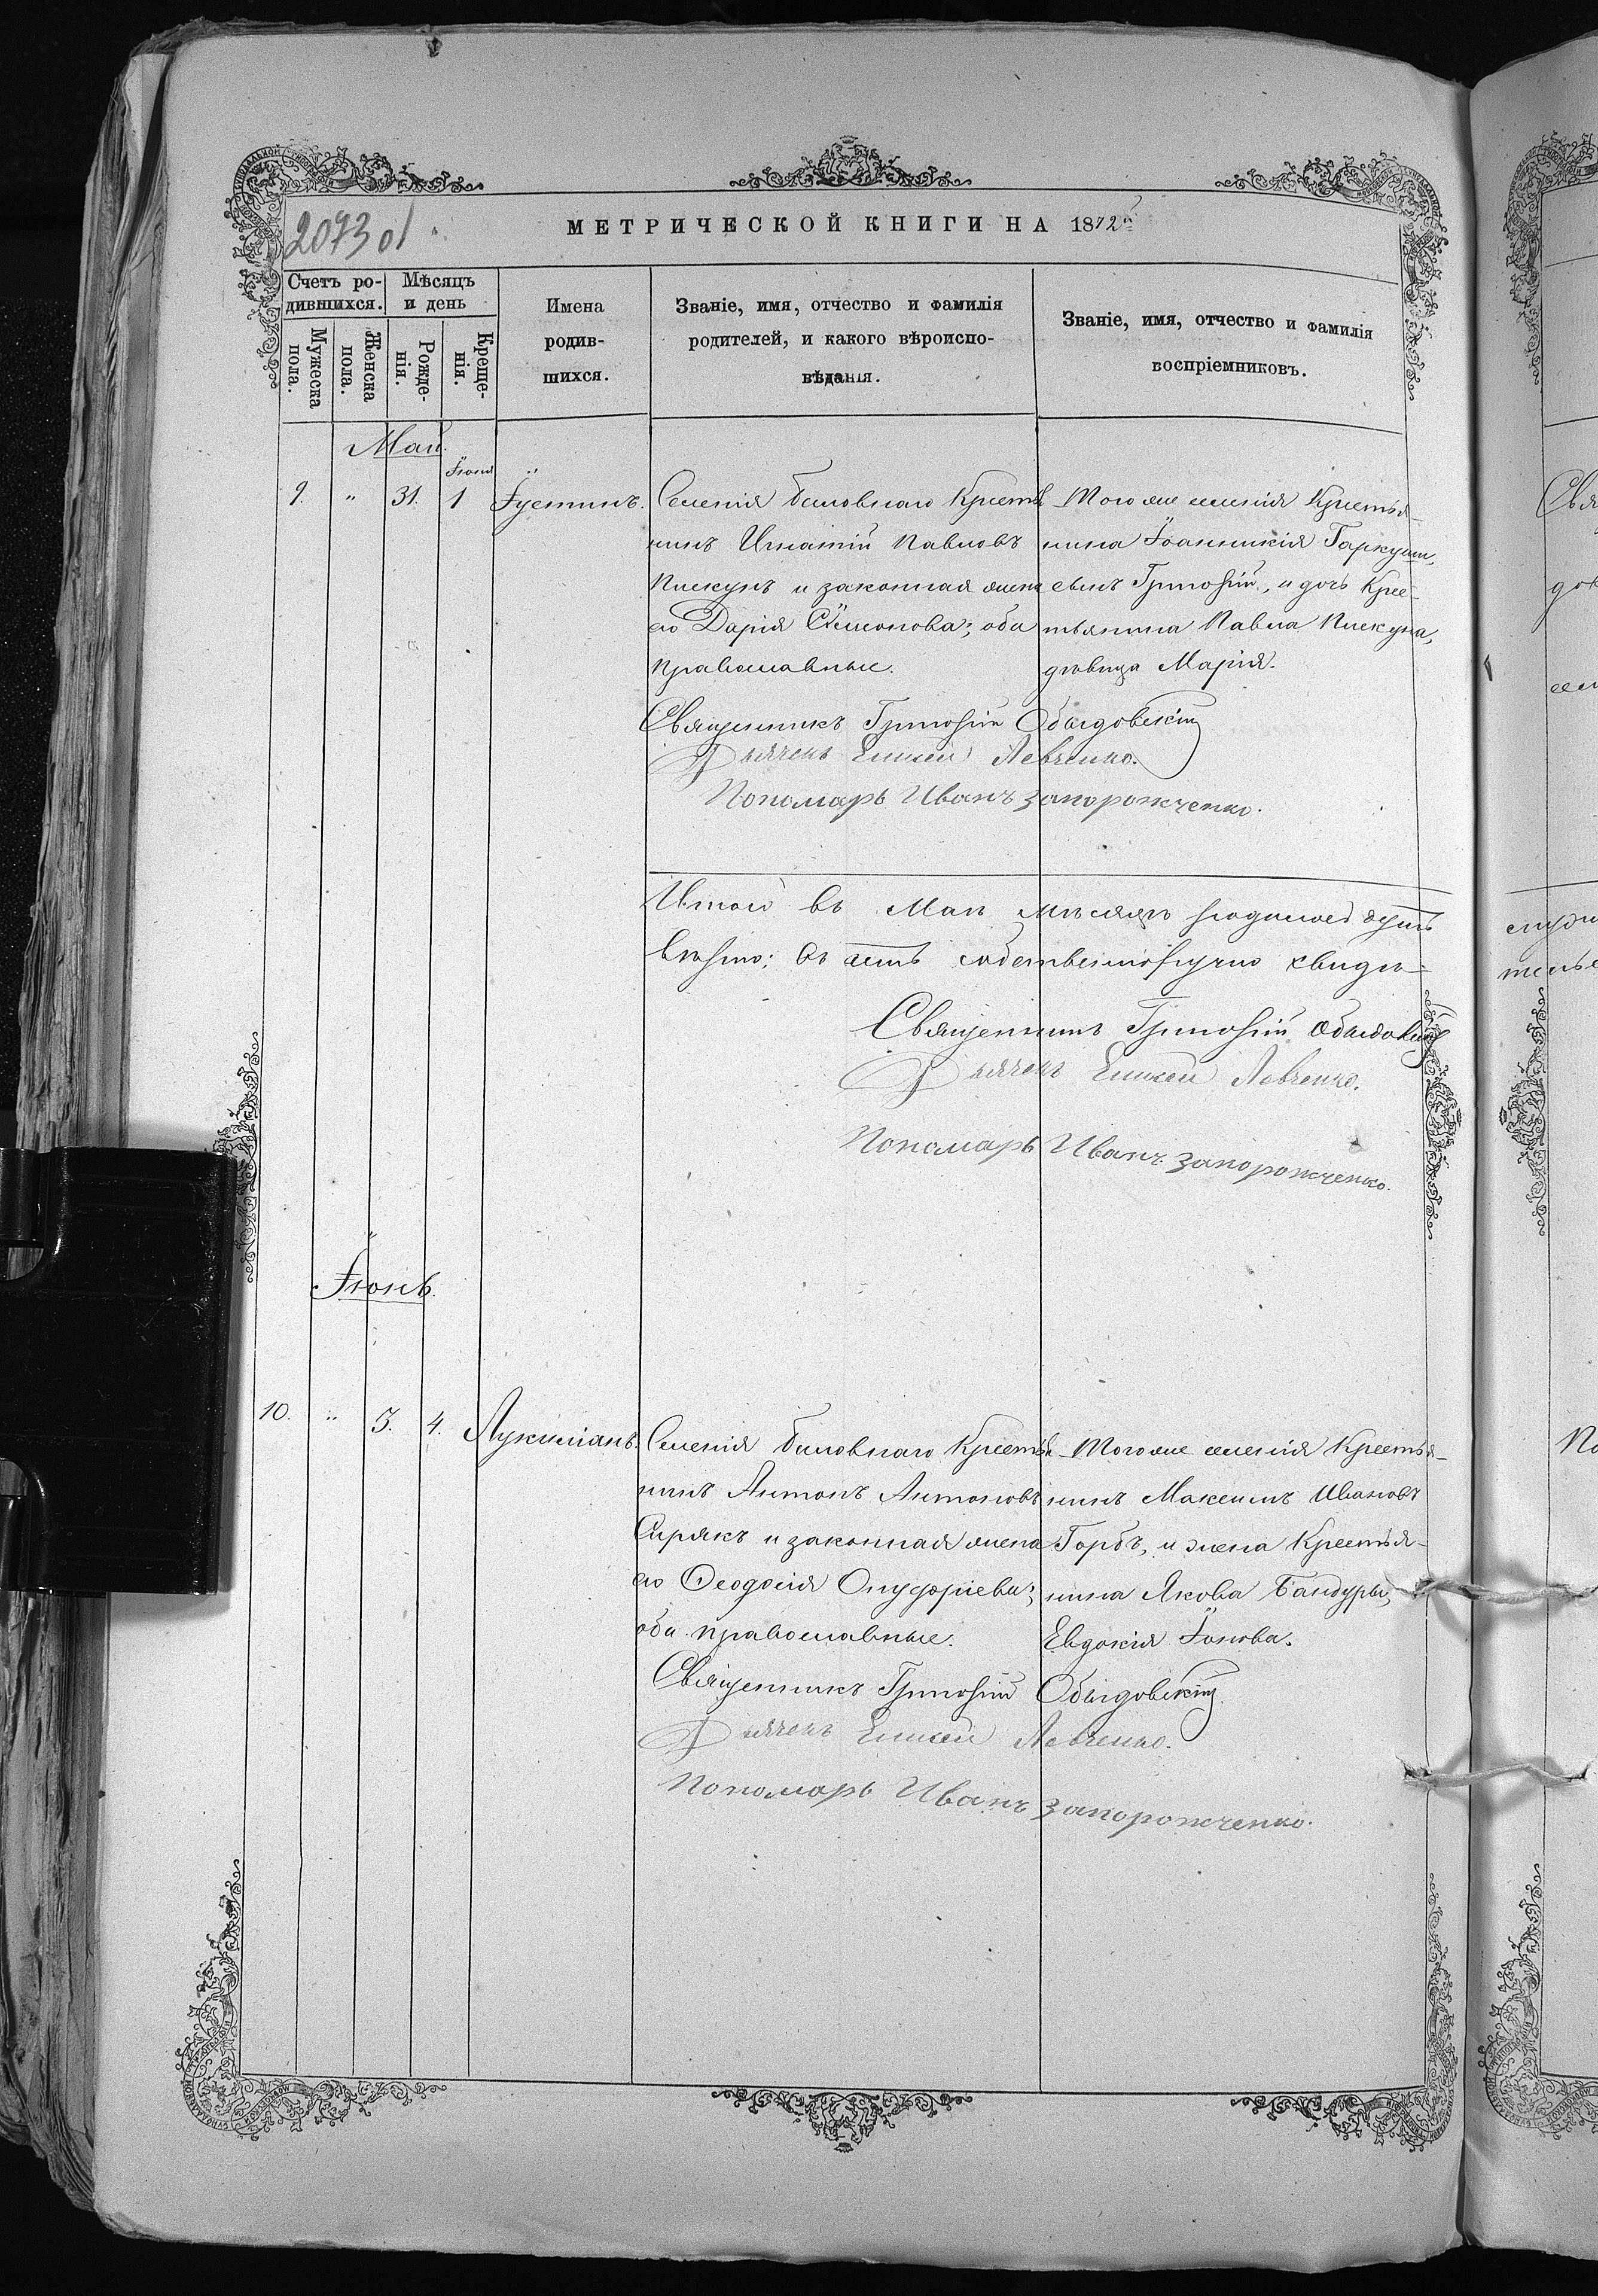 2073 об
МЕТРИЧЕСКОЙ КНИГИ НА 1872
Счетъ ро-
дившихся.
Мѣсяцъ
и день
Мужеска
пола.
Женска
пола.
Рожде-
нія.
Креще-
нія.
Имена
родив-
шихся.
Званіе, имя, отчество и фамилія
родителей, и какого вѣроиспо-
вѣданія.
Званіе, имя, отчество и фамилія
воспріемниковъ.
Май
Іюня
9. " 31. 1 Іустинъ.
Селенія Крестья
нинъ Игнатій Павловъ
Пискунъ и законная жена
его Дарія Сѵмеонова; оба
православные.
Того же селенія Крестья-
нина Іоанникія Гаркуши,
сынъ Григорій, и дочь Кре-
стьянина Павла Пискуна,
дѣвица Марія.
Священникъ Григорій Обыдовскій
Дьячекъ Елисей Левченко.
Пономарь Иванъ Запорожченко.
Итого въ Маѣ мѣсяцѣ
вѣрно; въ чемъ собственноручно свидѣ-
Священникъ Григорій Обыдовскій
Дьячекъ Елисей Левченко.
Пономарь Иванъ Запорожченко.
Іюнь.
10. " 3. 4. Лукиліанъ.
Селенія Крестья
нинъ Антонъ Антоновъ
Сирякъ и законная жена
его Ѳеодосія Онуфріева;
оба православные.
Того же селенія Крестья-
нинъ Максимъ Ивановъ
Горбъ, и жена Крестья-
нина Якова Бандуры,
Евдокія Іонова.
Священникъ Григорій Обыдовскій
Дьячекъ Елисей Левченко.
Пономарь Иванъ Запорожченко.